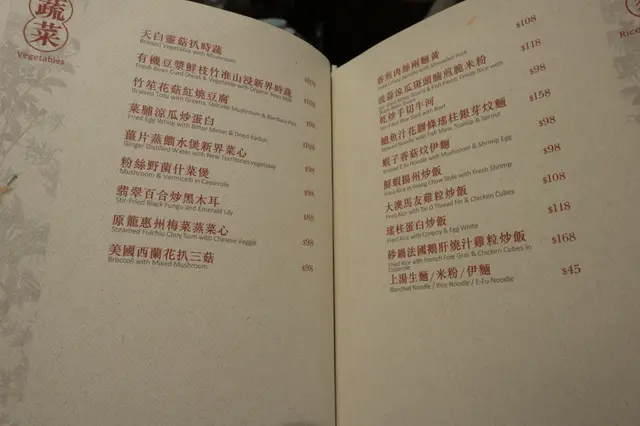 蔬菜
Vegetables
天白靈菇扒時蔬
Braised Vegetable with Mushroom
有機豆漿鮮枝竹淮山浸新界時蔬
Fresh Bean Curd Sheet & Vegetable with Organic Soya Milk
竹笙花菇紅燒豆腐
菜脯涼瓜炒蛋白
Fried Egg White with Bitter Melon & Dried Radish
薑片蒸餾水煲新界菜心
Ginger Distilled Water with New Territories Vegetable
粉絲野菌什菜煲
Mushroom & Vermicelli in Casserole
$98
翡翠百合炒黑木耳
Stir-Fried Black Fungus and Emerald Lily
$98
原籠惠州梅菜蒸菜心
Steamed FuiChiu Choy Sum with Chinese Veggie
$98
美國西蘭花扒三菇
Broccoli with Mixed Mushroom
$98
Rice
香煎肉絲兩麵黃
$108
$118
乾炒手切牛河
$98
鮑魚汁花膠條瑤柱銀芽炆麵
$158
蝦子香菇炆伊麵
Braised E-Fu Noodle with Mushroom & Shrimp Egg
$98
鮮蝦揚州炒飯
Fried Rice in Young Chow Style with Fresh Shrimp
$98
大澳馬友雞粒炒飯
Fried Rice with Tai O Thread Fin & Chicken Cubes
$108
瑤柱蛋白炒飯
Fried Rice with Conpoy & Egg White
$118
砂鍋法國鵝肝燒汁雞粒炒飯
Fried Rice with French Foie Gras & Chicken Cubes in
Casserole
$168
上湯生麵/米粉/伊麵
Blanched Noodle / Rice Noodle / E-Fu Noodle
$45